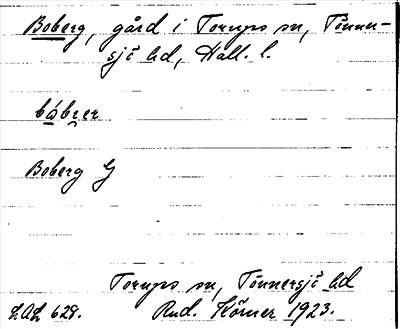 Boberg, gård i Torups sn, Tönner-
sjö hd, Hall. l.
bábrer
Boberg G
Torups sn, Tönnersjö hd
L.A.L 628. Rud. Körner 1923.